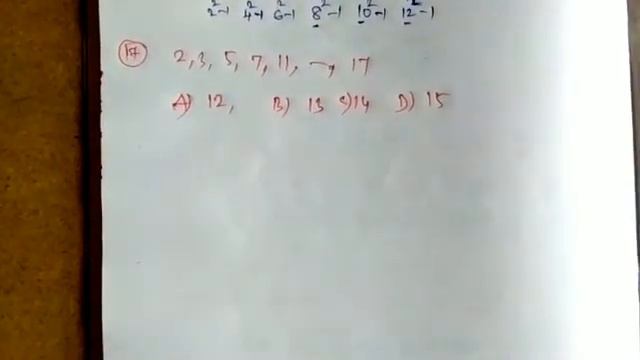 2²-1 4²-1 6²-1 8²-1 10²-1 12²-1
17 2, 3, 5, 7, 11, —, 17
A) 12, B) 13 C) 14 D) 15